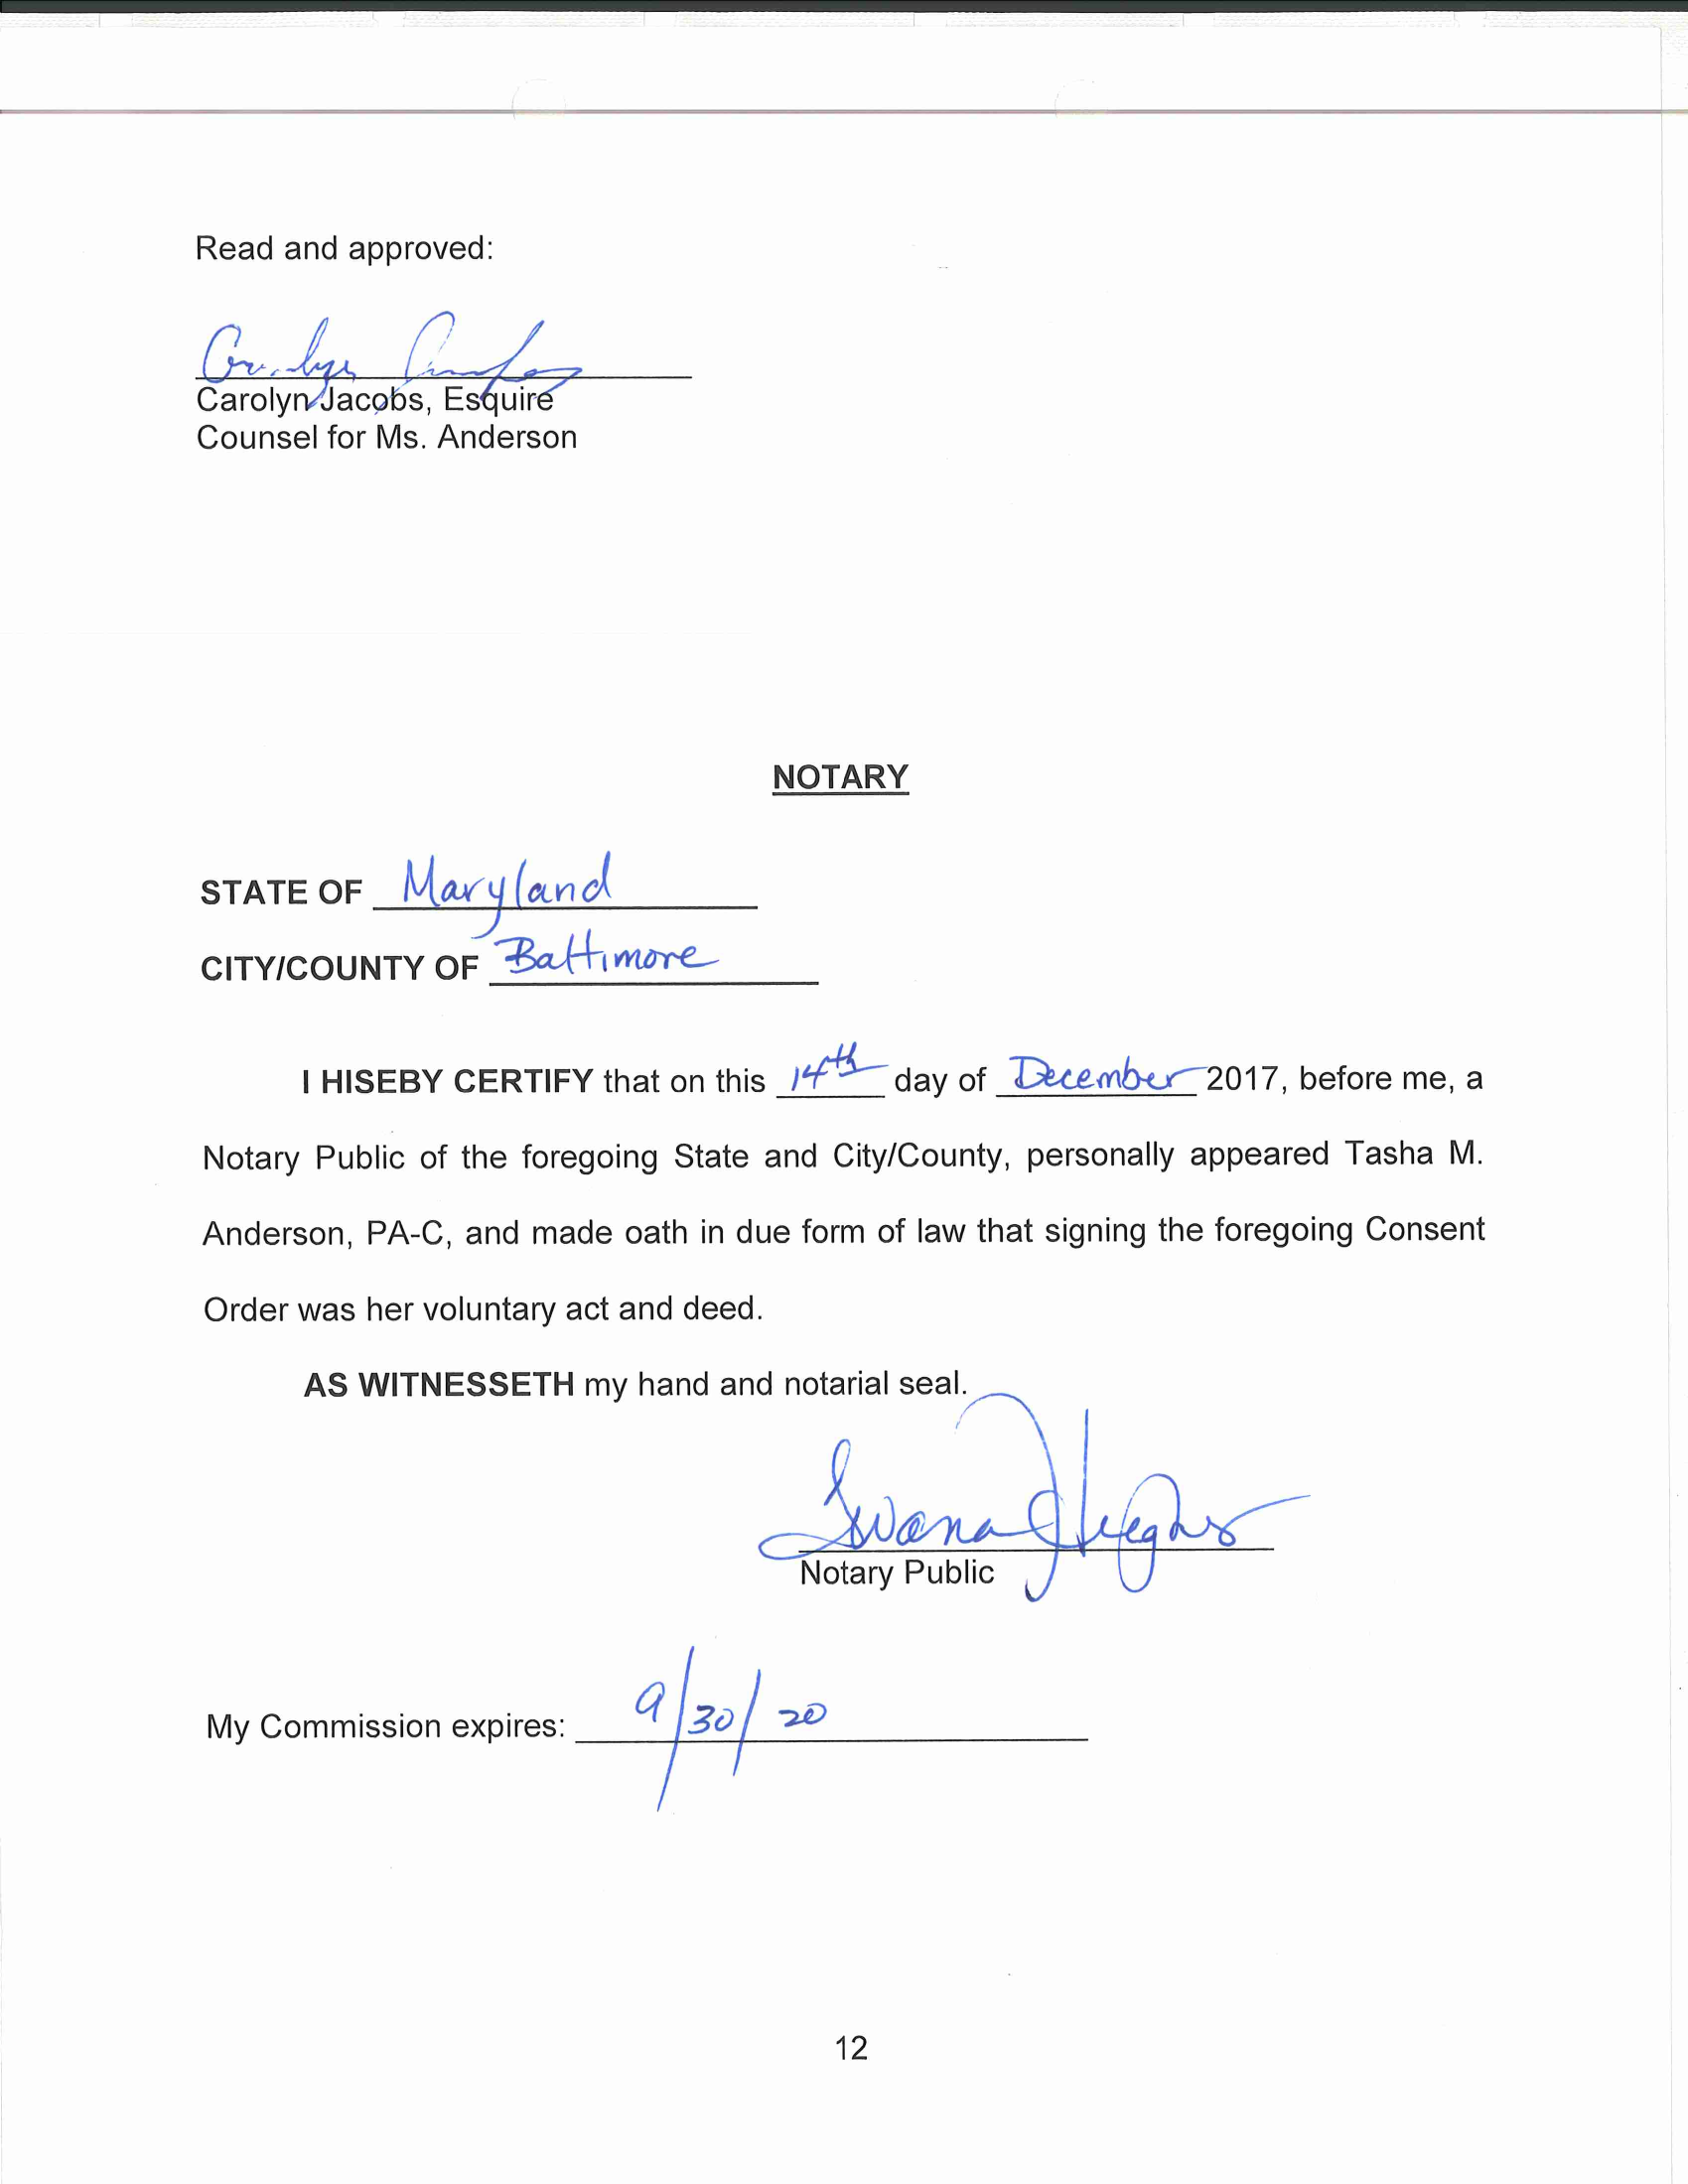 Read and approved:
Carolyn Jacobs, Esquire
Counsel for Ms. Anderson
NOTARY
STATE OF Maryland
CITY/COUNTY OF Baltimore
I HISEBY CERTIFY that on this 14th day of December 2017, before me, a
Notary Public of the foregoing State and City/County, personally appeared Tasha M.
Anderson, PA-C, and made oath in due form of law that signing the foregoing Consent
Order was her voluntary act and deed.
AS WITNESSETH my hand and notarial seal.
Notary Public
My Commission expires: 9/30/20
12